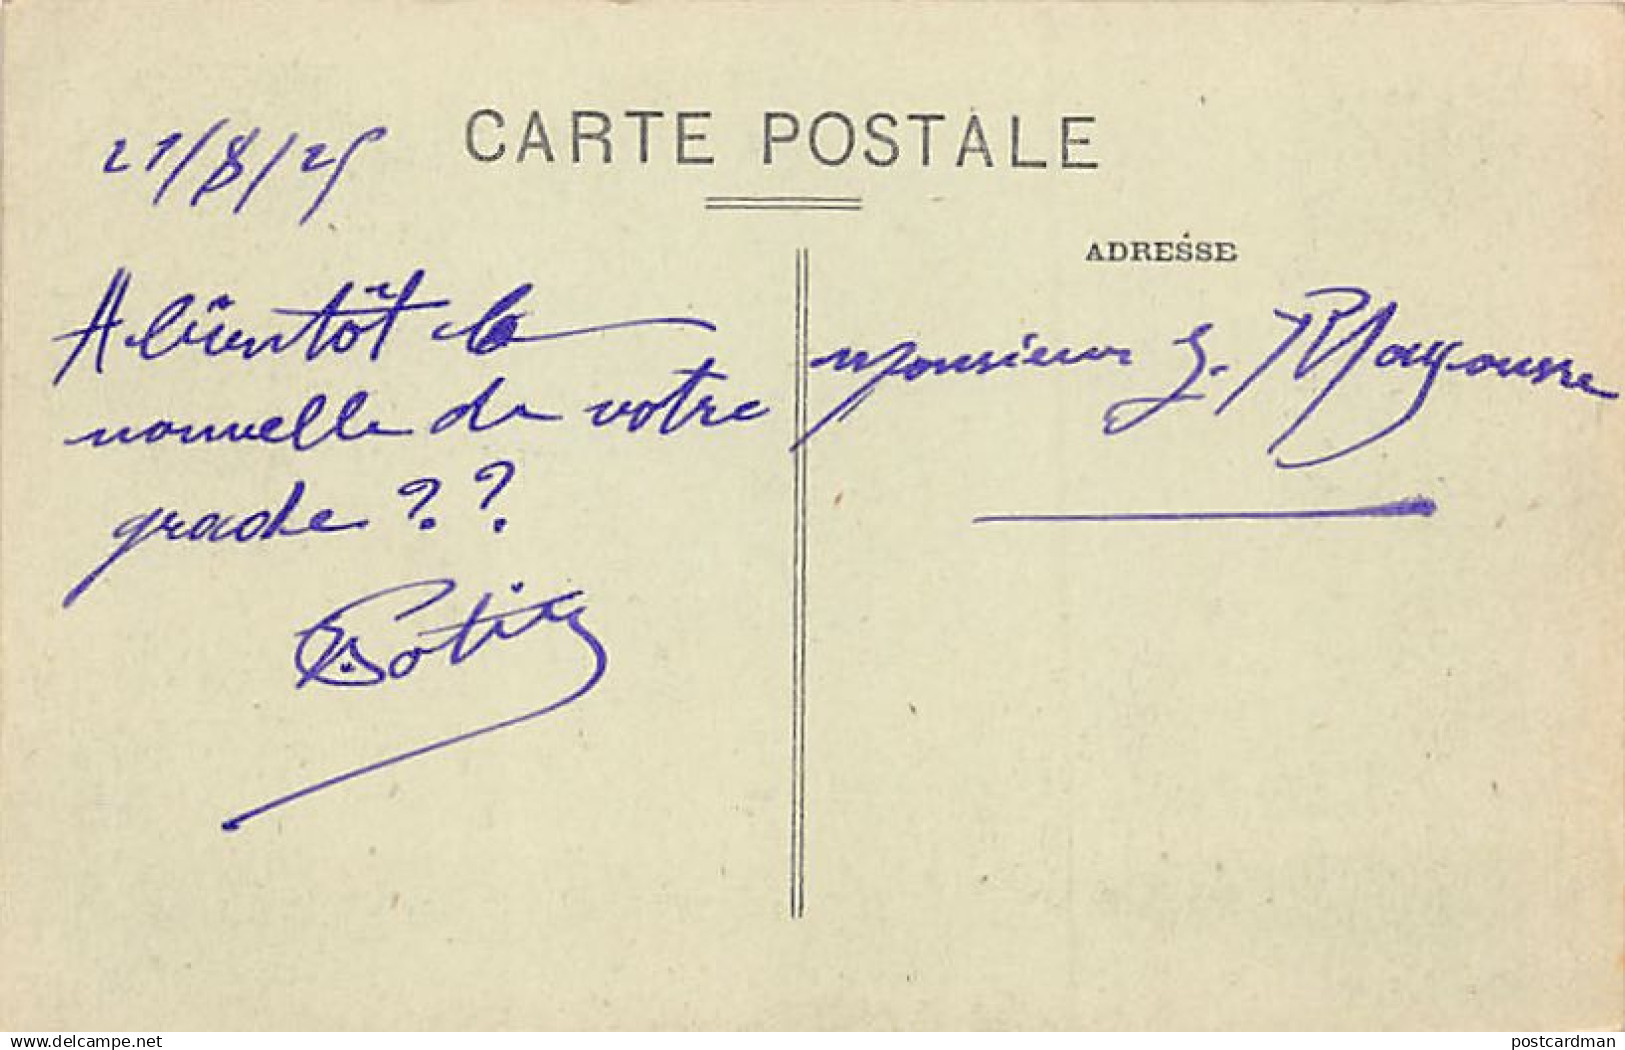 CARTE POSTALE
21/8/25
ADRESSE
A bientôt la
nouvelle de votre
grade ??
Monsieur G.
www.delcampe.net
postcardman